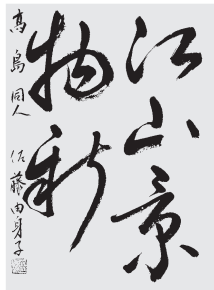 江山景
物新
高島同人 佐藤由身子